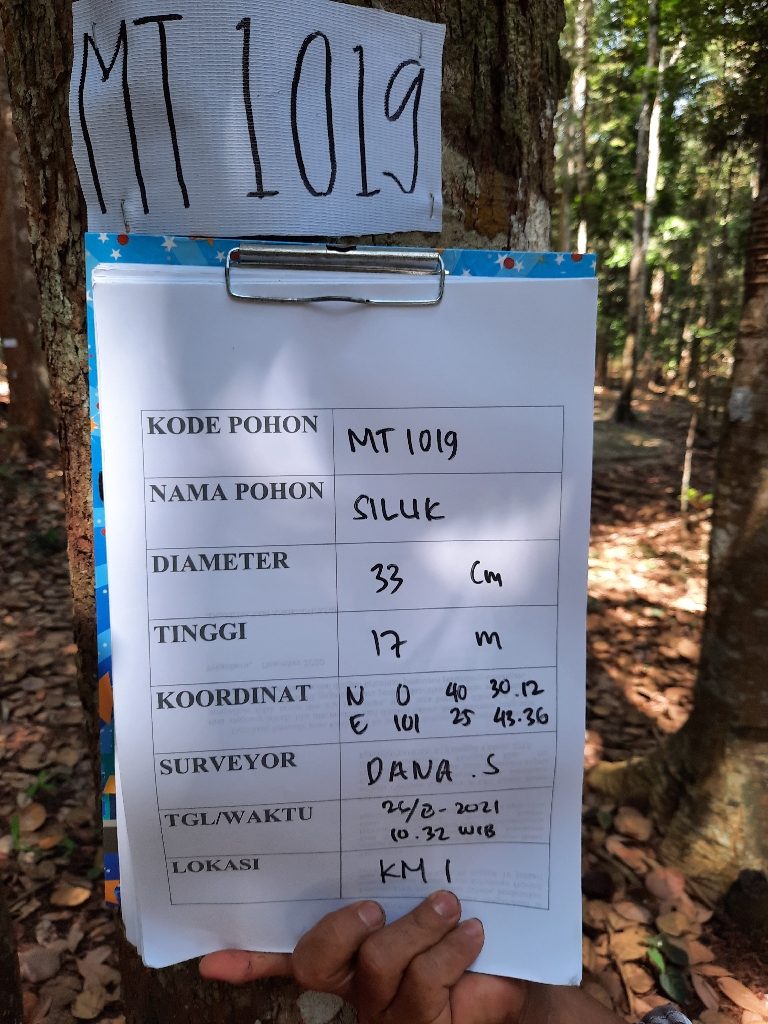 MT 1019
KODE POHON MT 1019
NAMA POHON SILUK
DIAMETER 33 Cm
TINGGI 17 m
KOORDINAT N 0 40 30.12
E 101 25 43.36
SURVEYOR DANA . S
TGL/WAKTU
10.32 WIB
LOKASI KM 1